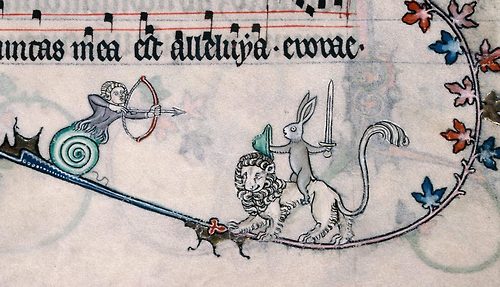 untas mea est alleluya · evovae ·